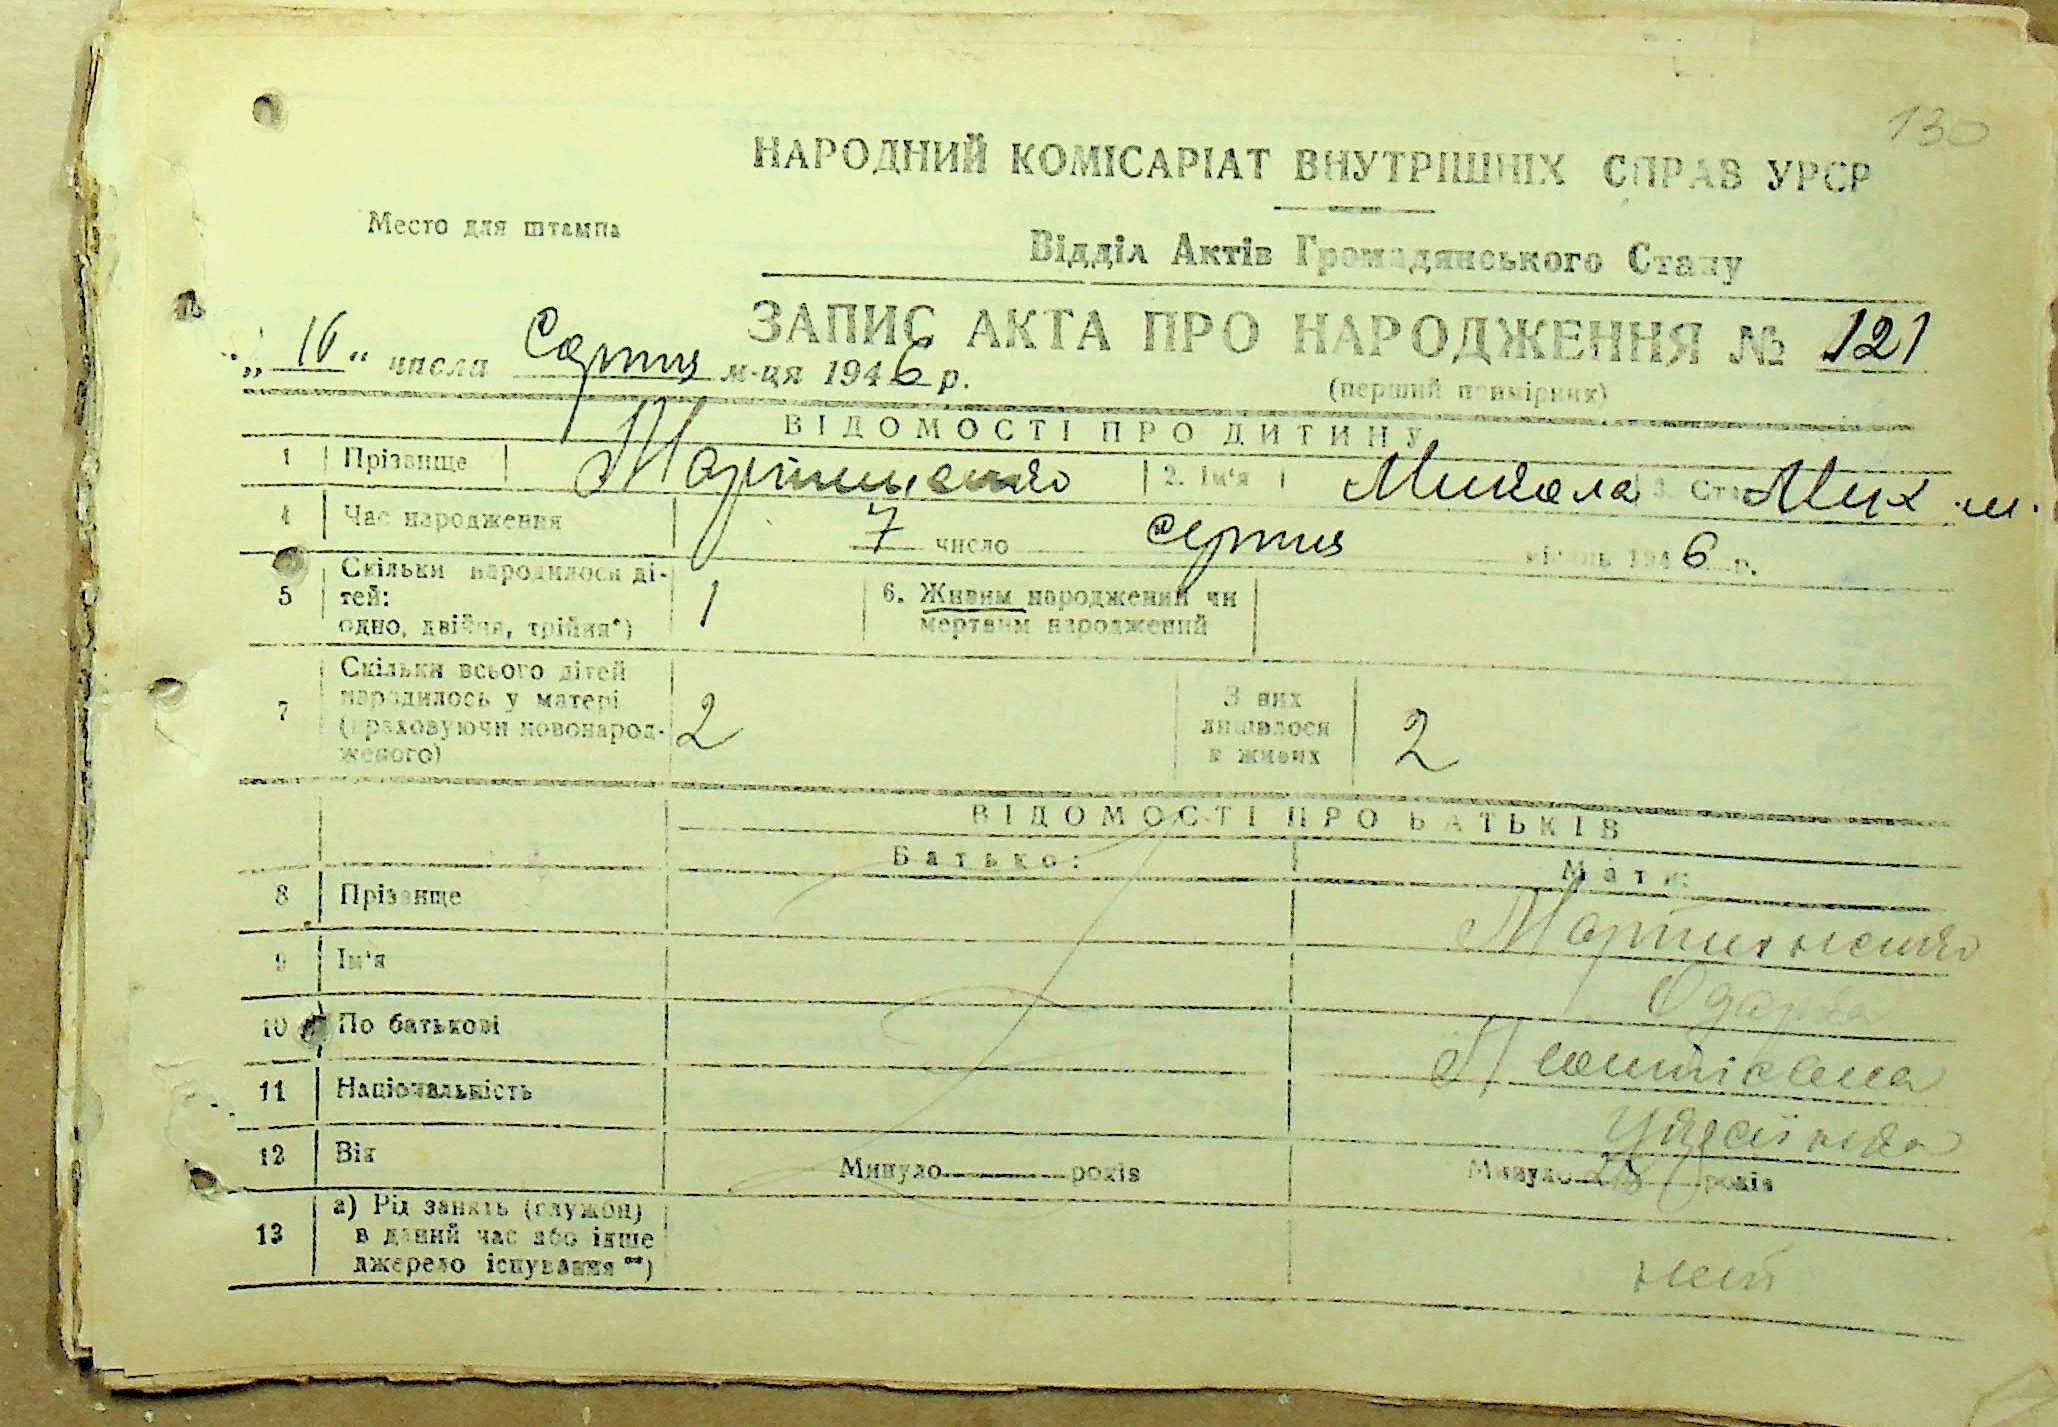 130
НАРОДНИЙ КОМІСАРІАТ ВНУТРІШНІХ СПРАВ УРСР
Место для штампа
Відділ Актів Громадянського Стану
ЗАПИС АКТА ПРО НАРОДЖЕННЯ № 121
„16“ числа Серпня м-ця 1946 р.
(перший примірник)
ВІДОМОСТІ ПРО ДИТИНУ
1 Прізвище Мартиненко 2. Ім‘я Микола 3. Ст
4 Час народження 7 число серпня місяць 1946 р.
5 Скільки народилося ді-
тей:
одно, двійня, трійня*) 1
6. Живим народжений чи
мертвим народжений
7 Скільки всього дітей
народилось у матері
(враховуючи новонарод-
женого) 2
З них
лишалося
в живих 2
ВІДОМОСТІ ПРО БАТЬКІВ
Батько: Мати:
8 Прізвище Мартиненко
9 Ім‘я Одарка
10 По батькові
11 Національність Українка
12 Вік Минуло років Минуло років
13 а) Рід занять (служби)
в даний час або інше
джерело існування**)